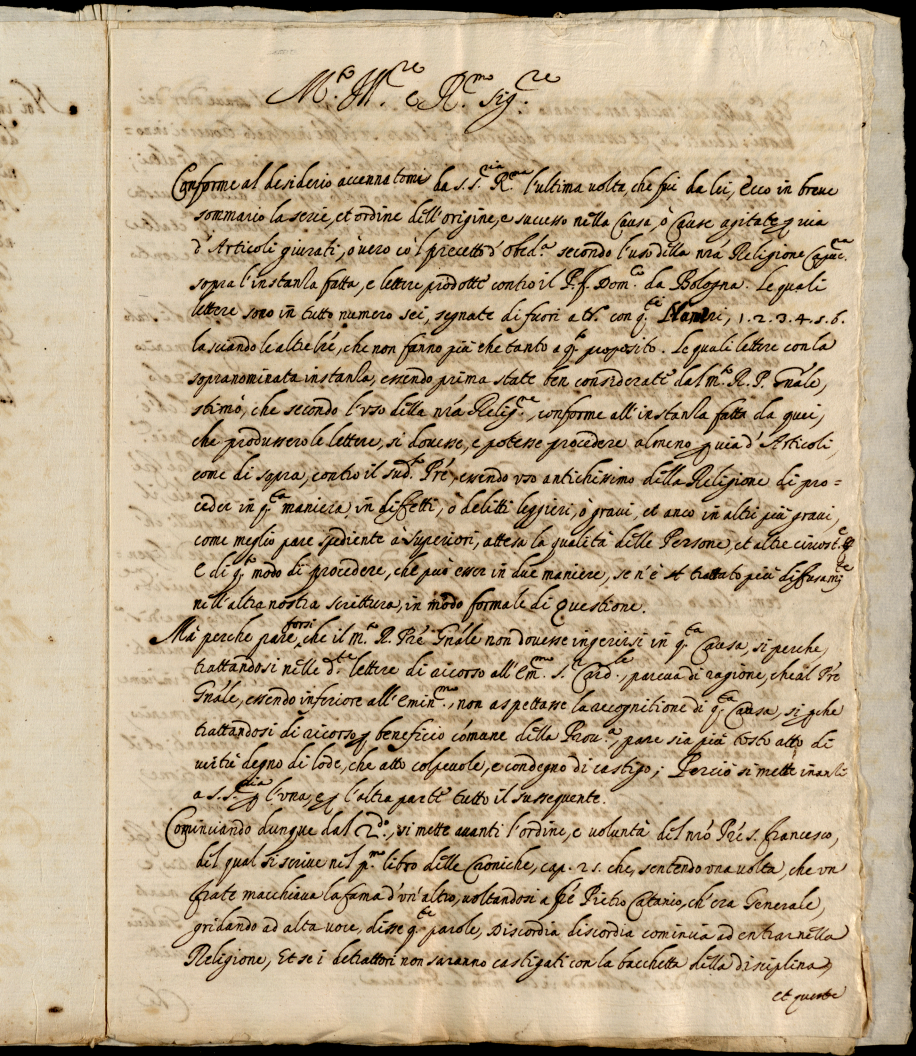 M.to Ill.re e R.mo Sig.re
Conforme al desiderio accennatomi da S.S.ria R.ma l'ultima uolta, che fui da lei, ecco in breue
sommario la serie, et ordine dell'origine, e successo nella Causa, ò Cause agitate p uia
d'Articoli giurati, ò uero co 'l precetto d'Obed.a secondo l'uso della nrã Religione Capuc.na
sopra l'instanza fatta, e lettere prodotte contro il P. f. Dom.co da Bologna. Le quali
lettere sono in tutto numero sei, segnate di fuori con q.ti Numeri, 1. 2. 3. 4. 5. 6.
lasciando le altre, che non fanno più che tanto a q.to proposito. Le quali lettere con la
sopranominata instanza, essendo prima state ben considerate dal m.to R. P. Gnãle,
stimò, che secondo l'vso della nrã Relig.ne, conforme all'instanza fatta da quei,
che produssero le lettere, si douesse, e potesse procedere almeno p uia d'Articoli,
come di sopra, contro il sud.to Prẽ, essendo vso antichissimo della Religione di pro=
ceder in q.ta maniera in diffetti, ò delitti leggieri, ò graui, et anco in altri più graui,
come meglio pare spediente à Superiori, attesa la qualità delle Persone, et altre circost.e
E di q.to modo di procedere, che può esser in due maniere, se n'è trattato più diffusam.te
nell'altra nostra scrittura, in modo formale di Questione.
Mà perche pare forsi, che il m.to R. Prẽ Gnãle non douesse ingerirsi in q.ta Causa, si perche,
trattandosi nelle d.te lettere di ricorso all'Em.mo S.r Card.le, pareua di ragione, che al Prẽ
Gnãle, essendo inferiore all'Emin.mo, non aspettasse la recognitione di q.ta Causa, si pche
trattandosi di ricorso p beneficio cómune della Prou.a, pare sia più tosto atto di
uirtù degno di lode, che atto colpeuole, e condegno di castigo; Perciò si mette inanzi
a S.S.ria p l'vna, e p l'altra parte tutto il susseguente.
Cominciando dunque dal 2.do, si mette auanti l'ordine, e uoluntà del nrõ Prẽ S. Francesco,
del qual si scriue nel p.mo libro delle Croniche, cap. 21. che, sentendo vna uolta, che vn
frate macchiaua la fama d'vn'altro, uoltandosi a frẽ Pietro Catanio, ch'era Generale,
gridando ad alta uoce, disse q.te parole, Discordia discordia comincia ad entrar nella
Religione, Et se i detrattori non saranno castigati con la bacchetta della disciplina,
et queste